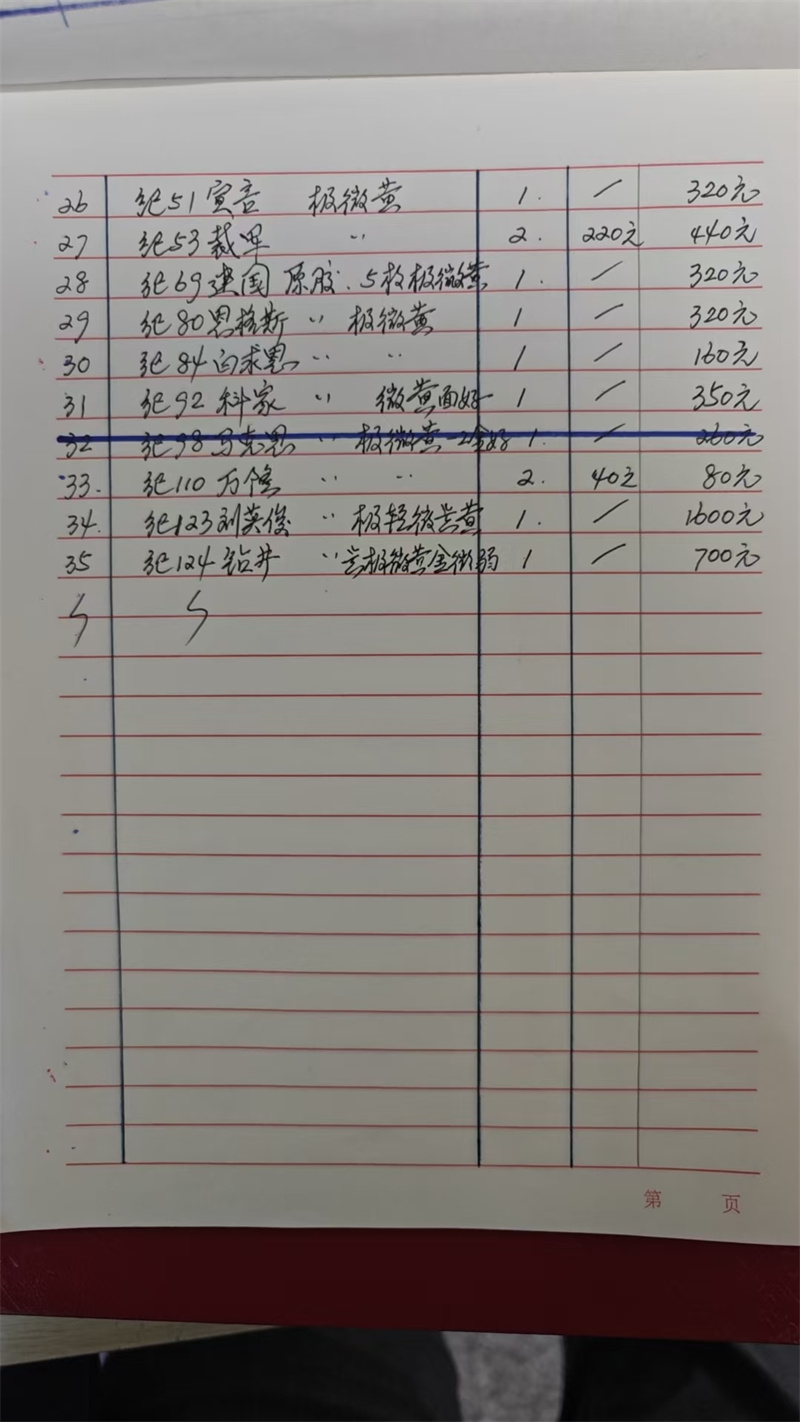 26 纪51宣言 极微黄 1. / 320元
27 纪53裁军 〃 2. 220元 440元
28 纪69建国 原胶.5枚极微黄 1. / 320元
29 纪80恩格斯 〃 极微黄 1 / 320元
30 纪84白求恩 〃 〃 1 / 160元
31 纪92科家 〃 微黄面好 1 / 350元
32 纪98马克思 〃 极微黄 好 1. / 260元
33. 纪110万隆 〃 〃 2. 40元 80元
34. 纪123刘英俊 〃 极轻微黄 1. / 1600元
35 纪124钻井 〃 极微黄金微弱 1 / 700元
第 页